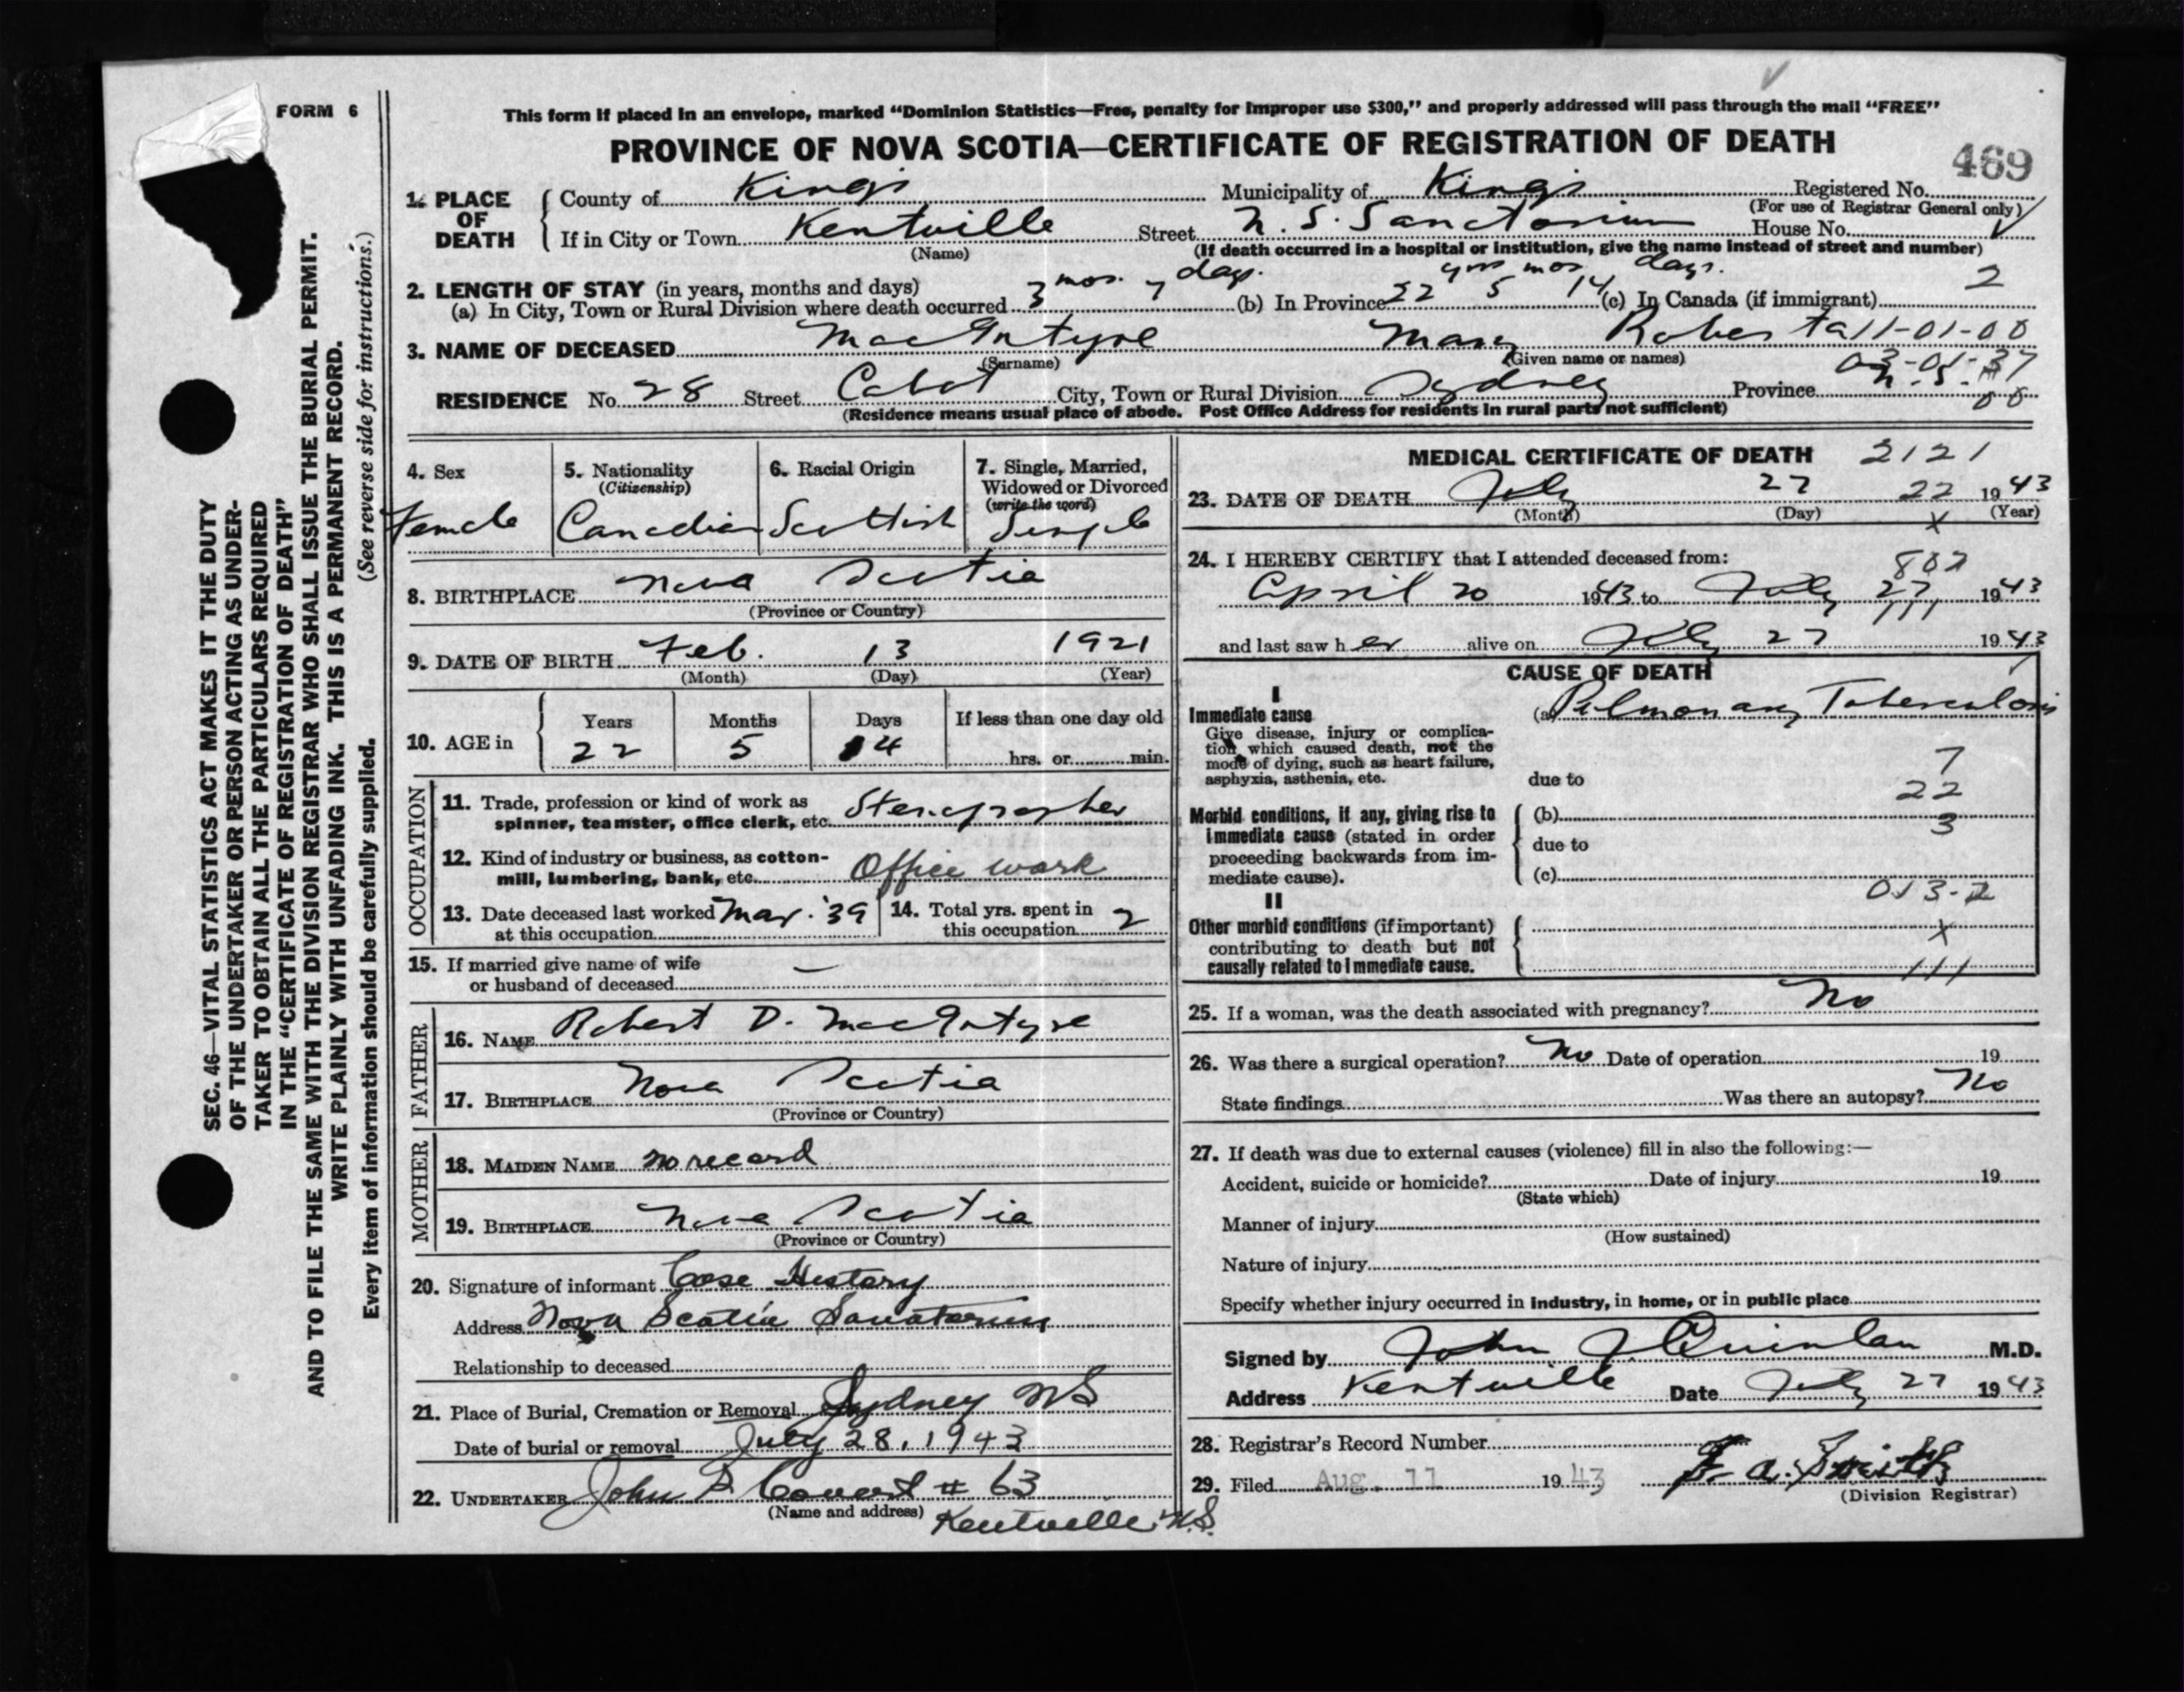 FORM 6
This form if placed in an envelope, marked "Dominion Statistics—Free, penalty for improper use $300," and properly addressed will pass through the mail "FREE"
PROVINCE OF NOVA SCOTIA—CERTIFICATE OF REGISTRATION OF DEATH
469
1. PLACE OF DEATH County of Kings Municipality of Kings Registered No.
(For use of Registrar General only)
If in City or Town Kentville Street N. S. Sanctorium House No.
(Name) (If death occurred in a hospital or institution, give the name instead of street and number)
2. LENGTH OF STAY (in years, months and days)
(a) In City, Town or Rural Division where death occurred 3 mos. 7 days. (b) In Province 22 yrs 5 mos 14 days. (c) In Canada (if immigrant) 2
3. NAME OF DECEASED MacIntyre Mary Roberta 11-01-00
(Surname) (Given name or names) 03-01-37
RESIDENCE No. 28 Street Cabot City, Town or Rural Division Sydney Province N.S. 00
(Residence means usual place of abode. Post Office Address for residents in rural parts not sufficient)
4. Sex
Female
5. Nationality
(Citizenship)
Canadian
6. Racial Origin
Scottish
7. Single, Married, Widowed or Divorced
(write the word)
Single
8. BIRTHPLACE Nova Scotia
(Province or Country)
9. DATE OF BIRTH Feb. 13 1921
(Month) (Day) (Year)
10. AGE in Years Months Days If less than one day old
22 5 14 hrs. or min.
OCCUPATION
11. Trade, profession or kind of work as
spinner, teamster, office clerk, etc. Stenographer
12. Kind of industry or business, as cotton-
mill, lumbering, bank, etc. Office work
13. Date deceased last worked Mar. '39
at this occupation
14. Total yrs. spent in
this occupation 2
15. If married give name of wife
or husband of deceased —
FATHER
16. NAME Robert D. MacIntyre
17. BIRTHPLACE Nova Scotia
(Province or Country)
MOTHER
18. MAIDEN NAME no record
19. BIRTHPLACE Nova Scotia
(Province or Country)
20. Signature of informant Case History
Address Nova Scotia Sanatorium
Relationship to deceased
21. Place of Burial, Cremation or Removal Sydney NS
Date of burial or removal July 28, 1943
22. UNDERTAKER John B # 63
(Name and address) Kentville N.S.
MEDICAL CERTIFICATE OF DEATH 2121
23. DATE OF DEATH July 27 22 1943
(Month) (Day) (Year)
X
24. I HEREBY CERTIFY that I attended deceased from:
802
April 20 1943 to July 27 1943
111
and last saw her alive on July 27 1943
CAUSE OF DEATH
I
Immediate cause (a) Pulmonary Tuberculosis
Give disease, injury or complica-
tion which caused death, not the
mode of dying, such as heart failure,
asphyxia, asthenia, etc. due to
7
22
3
Morbid conditions, if any, giving rise to (b)
immediate cause (stated in order
proceeding backwards from im- due to
mediate cause). (c)
013-2
II
Other morbid conditions (if important)
contributing to death but not X
causally related to immediate cause. 111
25. If a woman, was the death associated with pregnancy? No
26. Was there a surgical operation? No Date of operation 19
State findings Was there an autopsy? No
27. If death was due to external causes (violence) fill in also the following:—
Accident, suicide or homicide? Date of injury 19
(State which)
Manner of injury
(How sustained)
Nature of injury
Specify whether injury occurred in industry, in home, or in public place
Signed by John J Quinlan M.D.
Address Kentville Date July 27 1943
28. Registrar's Record Number
29. Filed Aug. 11 1943
(Division Registrar)
SEC. 46—VITAL STATISTICS ACT MAKES IT THE DUTY
OF THE UNDERTAKER OR PERSON ACTING AS UNDER-
TAKER TO OBTAIN ALL THE PARTICULARS REQUIRED
IN THE "CERTIFICATE OF REGISTRATION OF DEATH"
AND TO FILE THE SAME WITH THE DIVISION REGISTRAR WHO SHALL ISSUE THE BURIAL PERMIT.
WRITE PLAINLY WITH UNFADING INK. THIS IS A PERMANENT RECORD.
Every item of information should be carefully supplied. (See reverse side for instructions.)